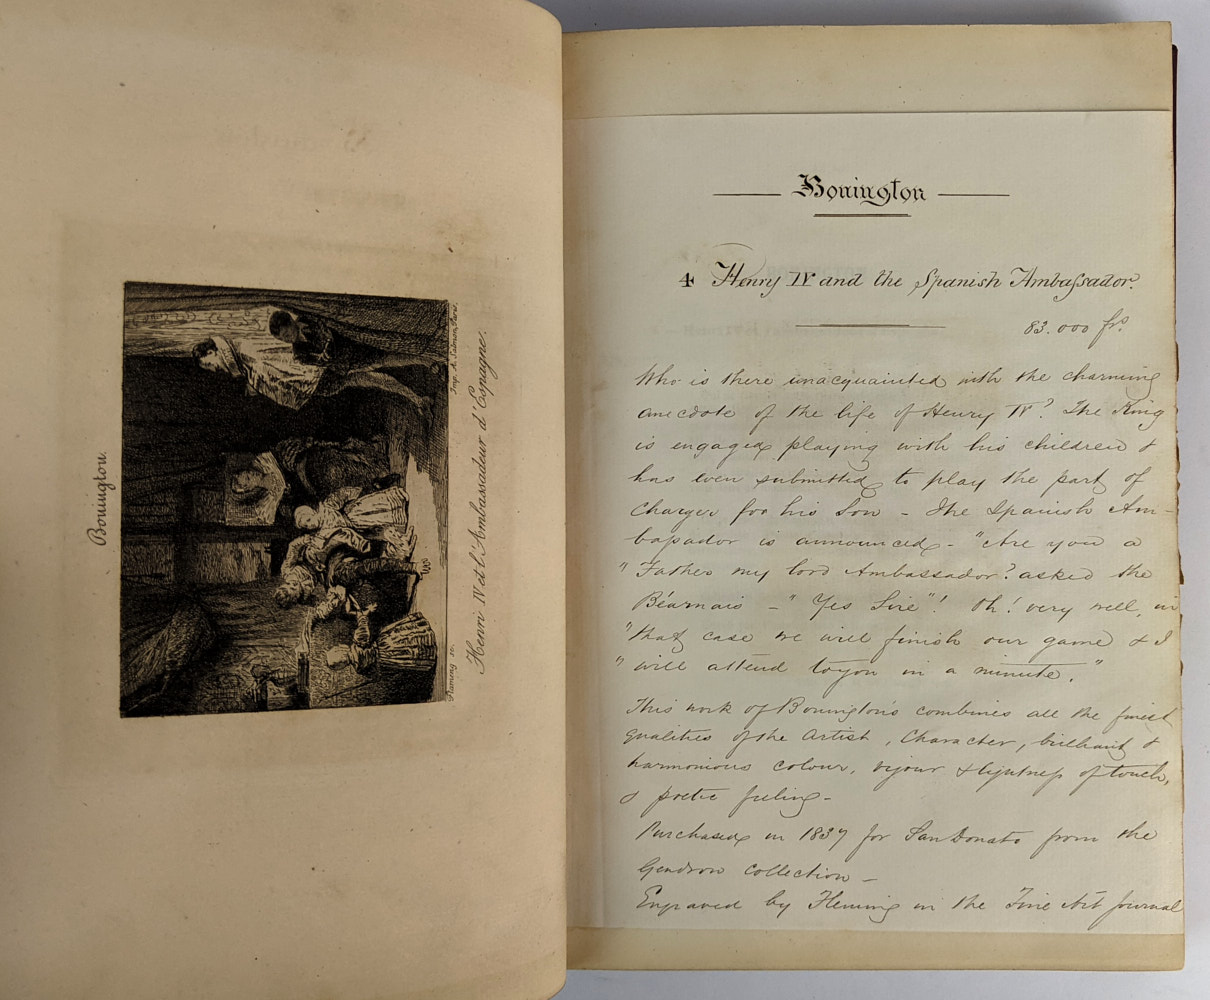 Bonington.
Flameng sc.
Imp. A. Salmon, Paris.
Henri IV et l'Ambassadeur d'Espagne.
Bonington
4 Henry IV and the Spanish Ambassador.
83.000 frs
Who is there unacquainted with the charming
anecdote of the life of Henry IV? The King
is engaged playing with his children &
has even submitted to play the part of
Charger for his Son - The Spanish Am-
bassador is announced - "Are you a
"Father my lord Ambassador? asked the
Béarnais - "Yes Sire"! Oh! very well, in
"that case we will finish our game & I
"will attend to you in a minute."
This work of Bonington's combines all the finest
qualities of the Artist, Character, brilliant &
harmonious colour, vigour & lightness of touch,
& poetic feeling -
Purchased in 1837 for San Donato from the
Gendron collection -
Engraved by Fleming in the Fine Art Journal